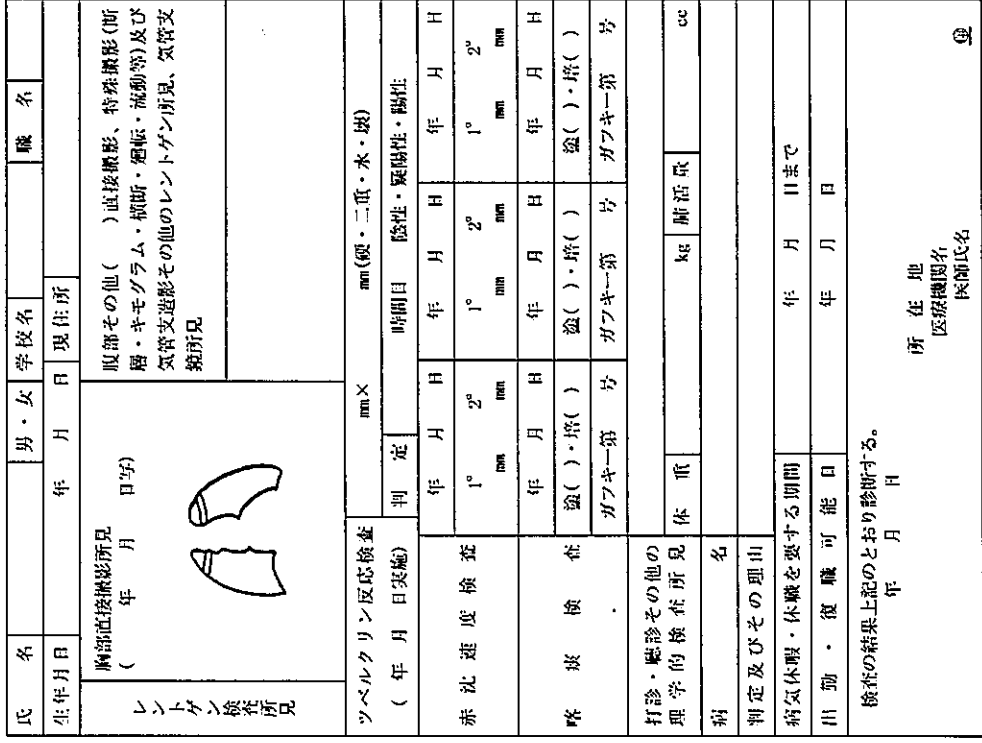 氏 名 男・女 学校名 職 名
生年月日 年 月 日 現住所
レントゲン検査所見
胸部直接撮影所見
( 年 月 日写)
腹部その他( )直接撮影、特殊撮影(断
層・キモグラム・横断・廻転・流動等)及び
気管支造影その他のレントゲン所見、気管支
鏡所見
ツベルクリン反応検査
( 年 月 日実施)
mm× mm(硬・二重・水・壊)
判 定 時間目 陰性・疑陽性・陽性
赤沈速度検査
年 月 日 年 月 日 年 月 日
1° 2° 1° 2° 1° 2°
mm mm mm mm mm mm
喀痰検査
年 月 日 年 月 日 年 月 日
塗( )・培( ) 塗( )・培( ) 塗( )・培( )
ガフキー第 号 ガフキー第 号 ガフキー第 号
打診・聴診その他の
理学的検査所見
体 重 kg 肺活量 cc
病 名
判定及びその理由
病気休暇・休職を要する期間 年 月 日まで
出勤・復職可能日 年 月 日
検査の結果上記のとおり診断する。
年 月 日
所 在 地
医療機関名
医師氏名 ㊞